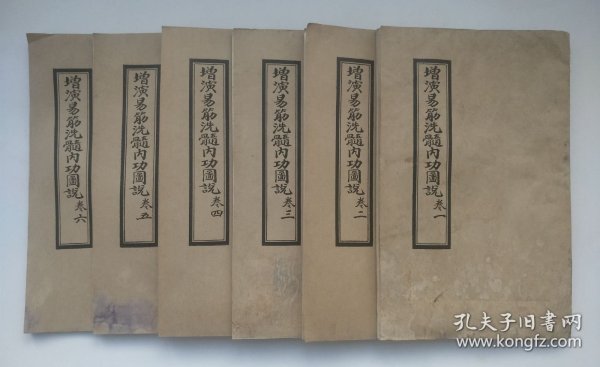 增演易筋洗髓內功圖說 卷一
增演易筋洗髓內功圖說 卷二
增演易筋洗髓內功圖說 卷三
增演易筋洗髓內功圖說 卷四
增演易筋洗髓內功圖說 卷五
增演易筋洗髓內功圖說 卷六
孔夫子旧书网
www.kongfz.com